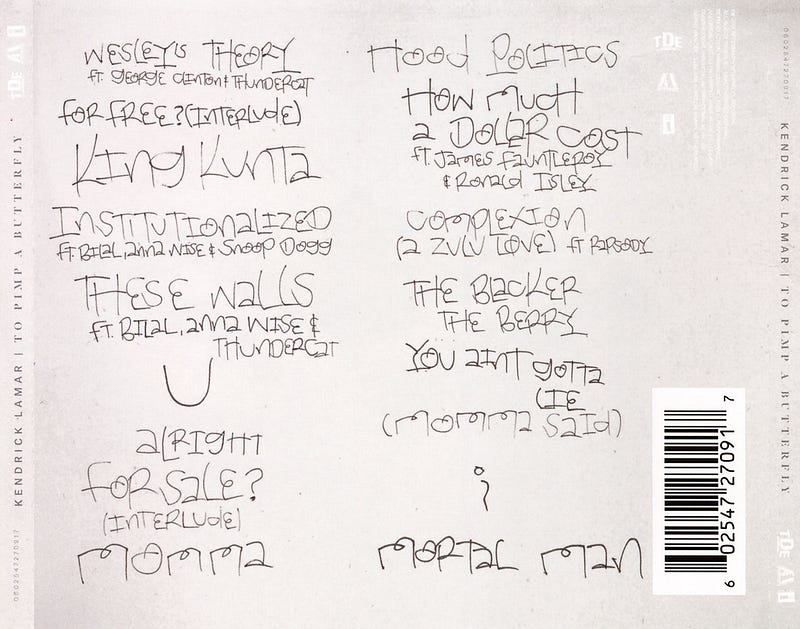 KENDRICK LAMAR | TO PIMP A BUTTERFLY
0602547270917
WESLEY'S THEORY
ft. GEORGE CLINTON & THUNDERCAT
FOR FREE? (INTERLUDE)
KING KUNTA
INSTITUTIONALIZED
ft BILAL, ANNA WISE & SNOOP DOGG
THESE WALLS
ft. BILAL, ANNA WISE &
THUNDERCAT
U
ALRIGHT
FOR SALE?
(INTERLUDE)
MOMMA
HOOD POLITICS
HOW MUCH
A DOLLAR COST
ft. JAMES FAUNTLEROY
& RONALD ISLEY
COMPLEXION
(A ZULU LOVE) ft RAPSODY
THE BLACKER
THE BERRY
YOU AINT GOTTA
LIE
(MOMMA SAID)
i
MORTAL MAN
TDE
6 02547 27091 7
0602547270917
KENDRICK LAMAR | TO PIMP A BUTTERFLY
TDE